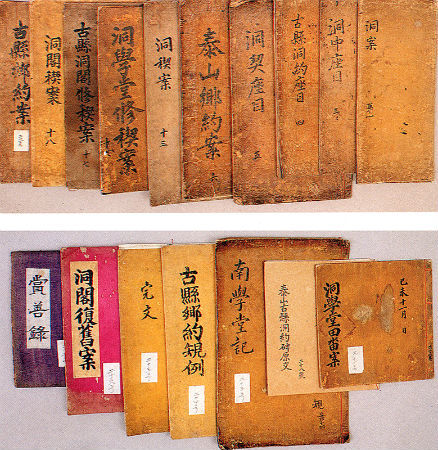 洞案
洞中座目
古縣洞約座目 四
洞契座目 五
泰山鄕約案 六
洞稧案 十三
洞學堂修稧案
古縣洞閣修稧案
洞閣稧案 十八
古縣鄕約案
己未十一月 日
洞學堂田畓案
泰山古縣洞約碑原文
南學堂記
古縣鄕約規例
完文
洞閣復舊案
賞善錄